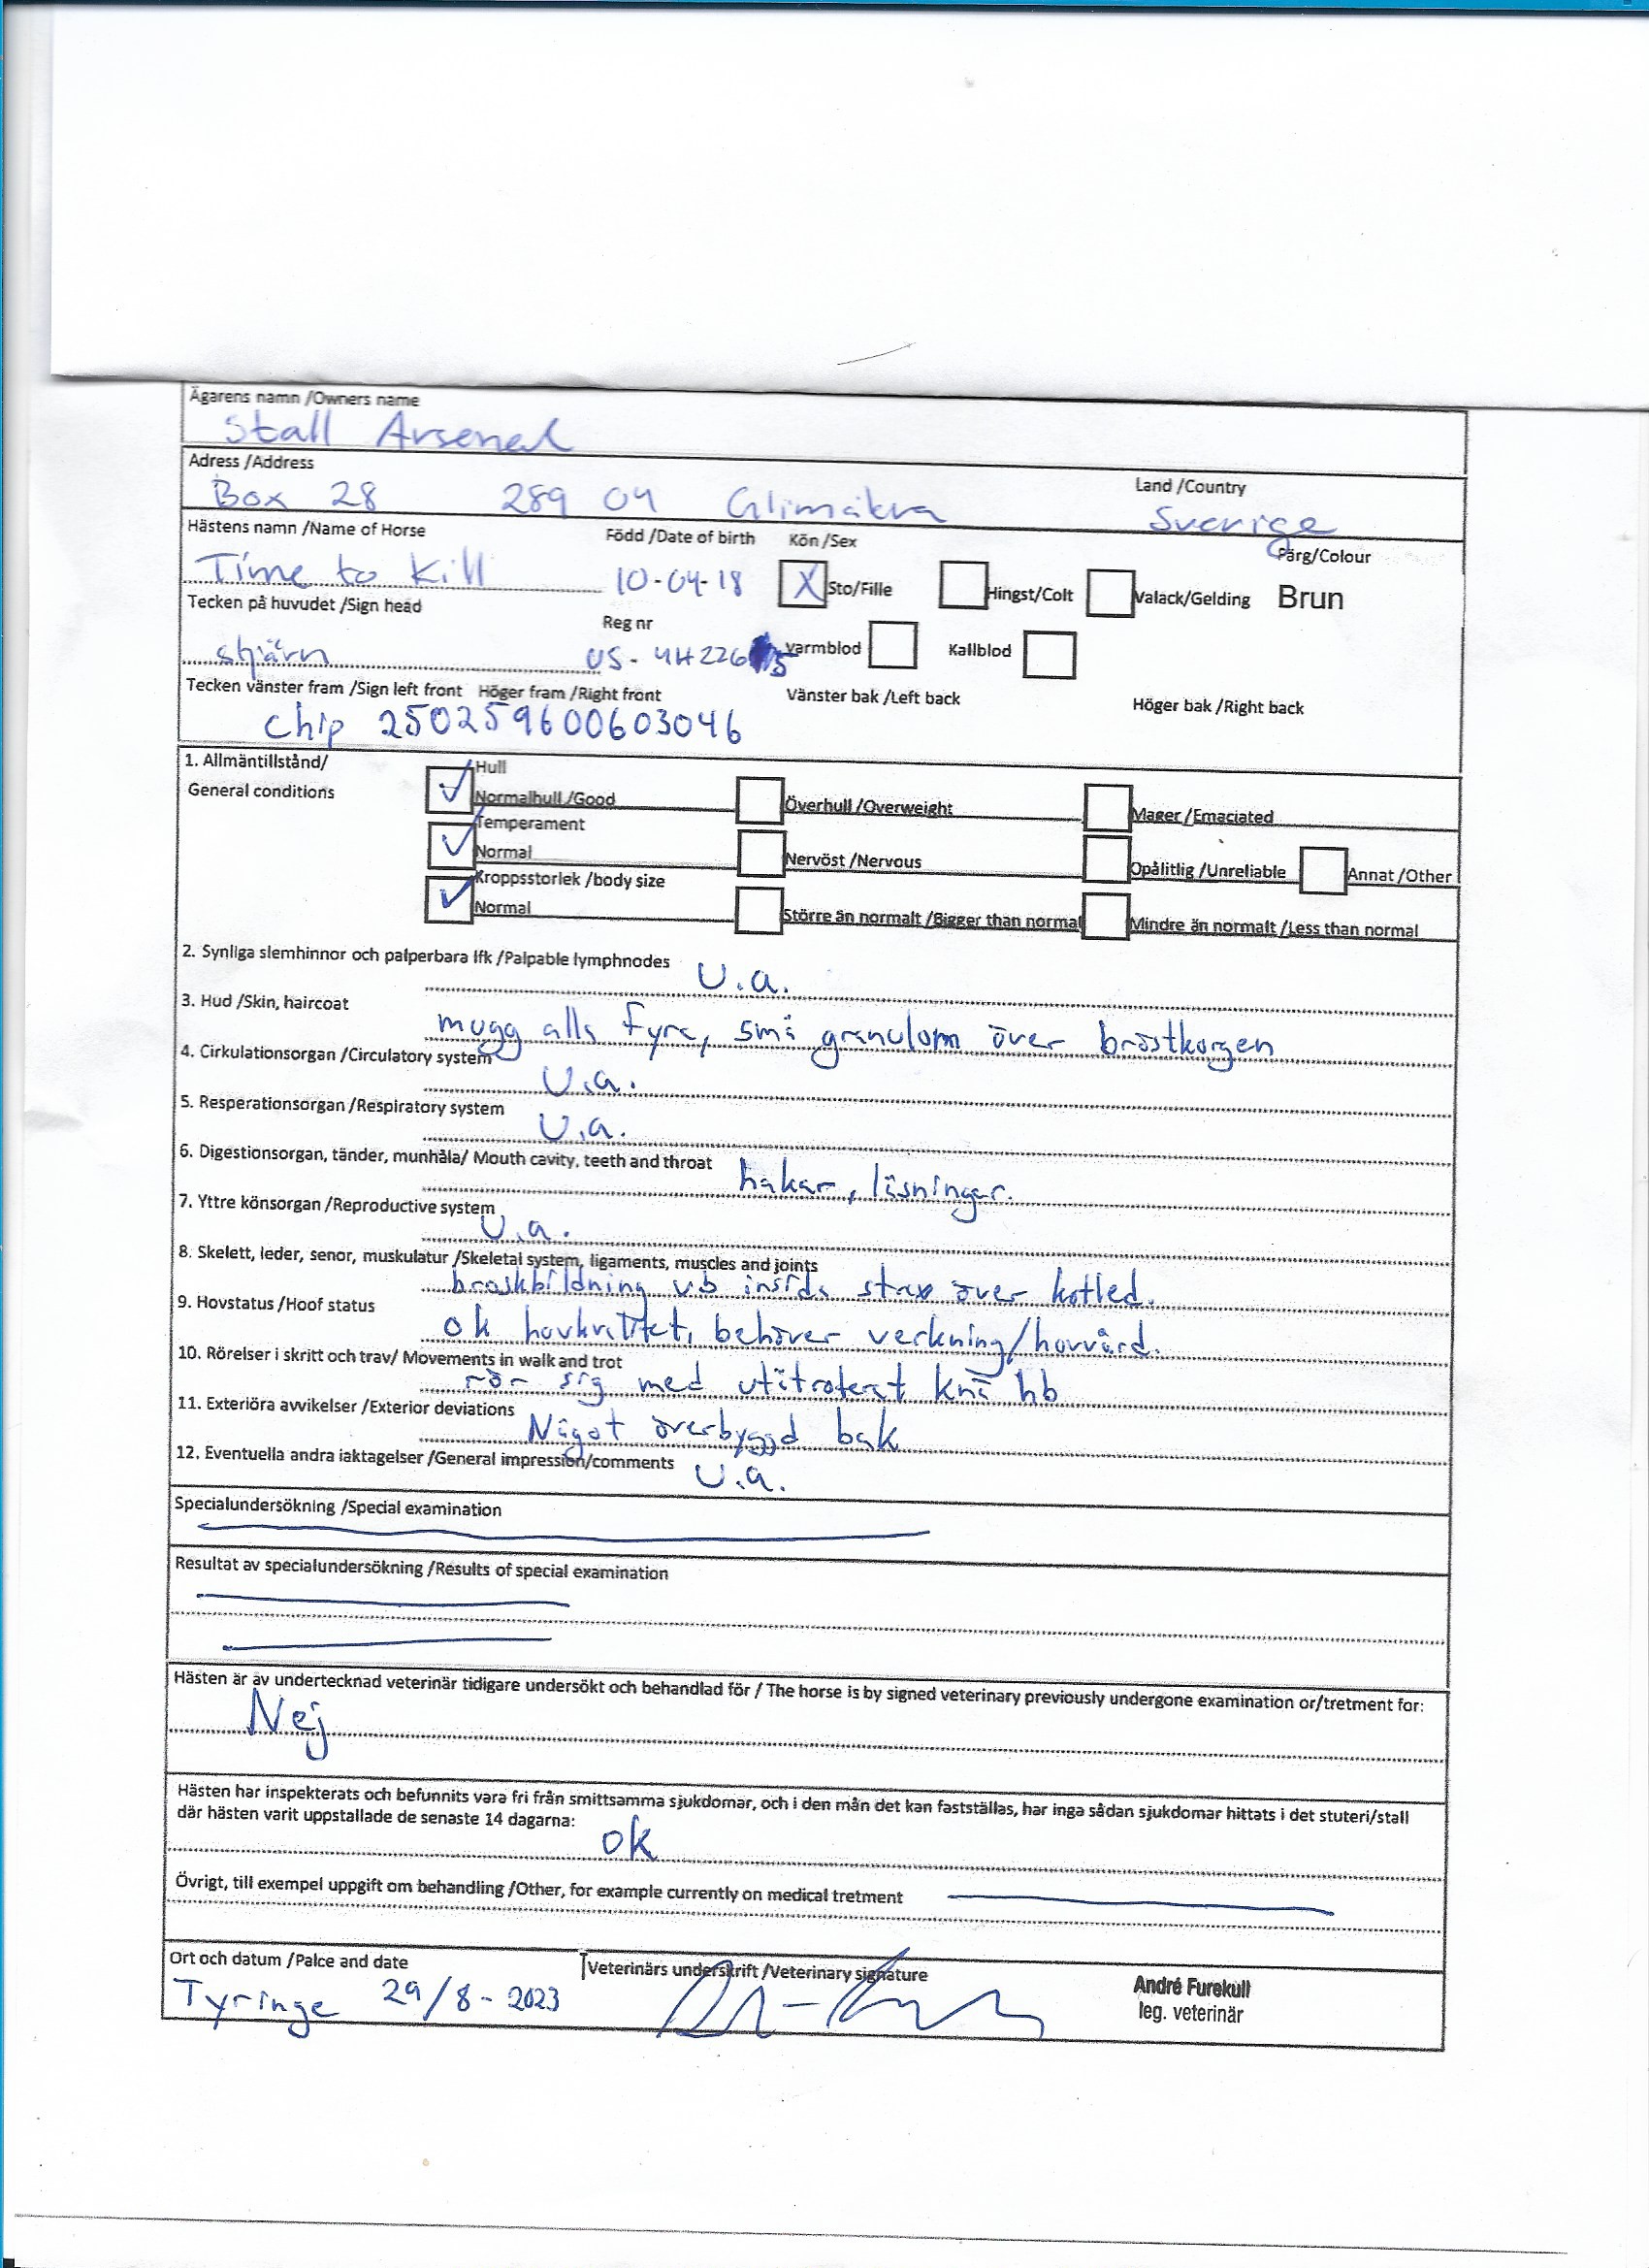 Ägarens namn /Owners name
Stall Arsenal
Adress /Address
Land /Country
Box 28 289 04 Glimåkra Sverige
Hästens namn /Name of Horse Född /Date of birth Kön /Sex Färg/Colour
Time to Kill 10-04-18 X Sto/Fille Hingst/Colt Valack/Gelding Brun
Tecken på huvudet /Sign head Reg nr
stjärn US-4H226 5 Varmblod Kallblod
Tecken vänster fram /Sign left front Höger fram /Right front Vänster bak /Left back Höger bak /Right back
Chip 250259600603046
1. Allmäntillstånd/ Hull
General conditions Normalhull /Good Överhull /Overweight Mager /Emaciated
Temperament
Normal Nervöst /Nervous Opålitlig /Unreliable Annat /Other
Kroppsstorlek /body size
Normal Större än normalt /Bigger than normal Mindre än normalt /Less than normal
2. Synliga slemhinnor och palperbara lfk /Palpable lymphnodes U.a.
3. Hud /Skin, haircoat
mugg alla fyra, små granulom över bröstkorgen
4. Cirkulationsorgan /Circulatory system
U.a.
5. Resperationsorgan /Respiratory system
U.a.
6. Digestionsorgan, tänder, munhåla/ Mouth cavity, teeth and throat
hakar, låsningar.
7. Yttre könsorgan /Reproductive system
U.a.
8. Skelett, leder, senor, muskulatur /Skeletal system, ligaments, muscles and joints
broskbildning vb insida strax över kotled.
9. Hovstatus /Hoof status
ok hovkvalitet, behöver verkning/hovvård.
10. Rörelser i skritt och trav/ Movements in walk and trot
rör sig med utåtroterat knä hb
11. Exteriöra avvikelser /Exterior deviations
Något överbyggd bak
12. Eventuella andra iaktagelser /General impression/comments
U.a.
Specialundersökning /Special examination
Resultat av specialundersökning /Results of special examination
Hästen är av undertecknad veterinär tidigare undersökt och behandlad för / The horse is by signed veterinary previously undergone examination or/tretment for:
Nej
Hästen har inspekterats och befunnits vara fri från smittsamma sjukdomar, och i den mån det kan fastställas, har inga sådan sjukdomar hittats i det stuteri/stall
där hästen varit uppstallade de senaste 14 dagarna:
ok
Övrigt, till exempel uppgift om behandling /Other, for example currently on medical tretment
Ort och datum /Palce and date Veterinärs underskrift /Veterinary signature
André Furekull
Tyringe 29/8-2023 leg. veterinär